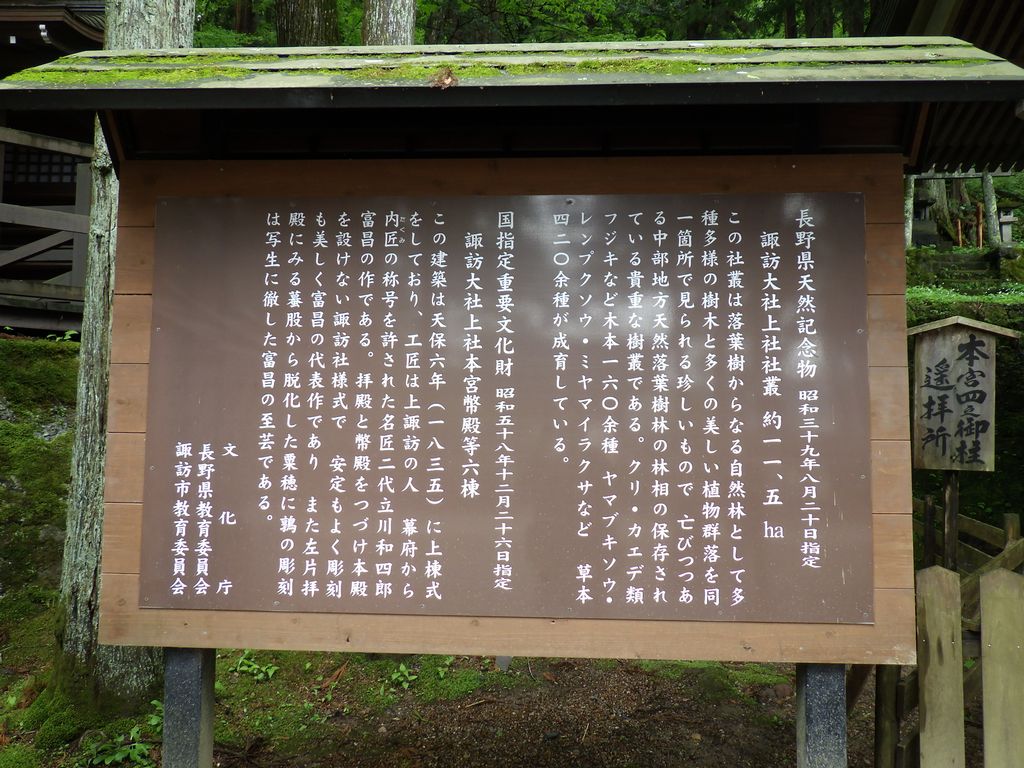 長野県天然記念物 昭和三十九年八月二十日指定
諏訪大社上社社叢 約一一、五 ha
この社叢は落葉樹からなる自然林として多
種多様の樹木と多くの美しい植物群落を同
一箇所で見られる珍しいもので 亡びつつあ
る中部地方天然落葉樹林の林相の保存され
ている貴重な樹叢である。クリ・カエデ類
フジキなど木本一六〇余種 ヤマブキソウ・
レンプクソウ・ミヤマイラクサなど 草本
四二〇余種が成育している。
国指定重要文化財 昭和五十八年十二月二十六日指定
諏訪大社上社本宮幣殿等六棟
この建築は天保六年（一八三五）に上棟式
をしており、工匠は上諏訪の人 幕府から
内匠の称号を許された名匠二代立川和四郎
たくみ
富昌の作である。拝殿と幣殿をつづけ本殿
を設けない諏訪社様式で 安定もよく彫刻
も美しく富昌の代表作であり また左片拝
殿にみる蟇股から脱化した粟穂に鶉の彫刻
は写生に徹した富昌の至芸である。
文化庁
長野県教育委員会
諏訪市教育委員会
本宮四之御柱
遙拝所